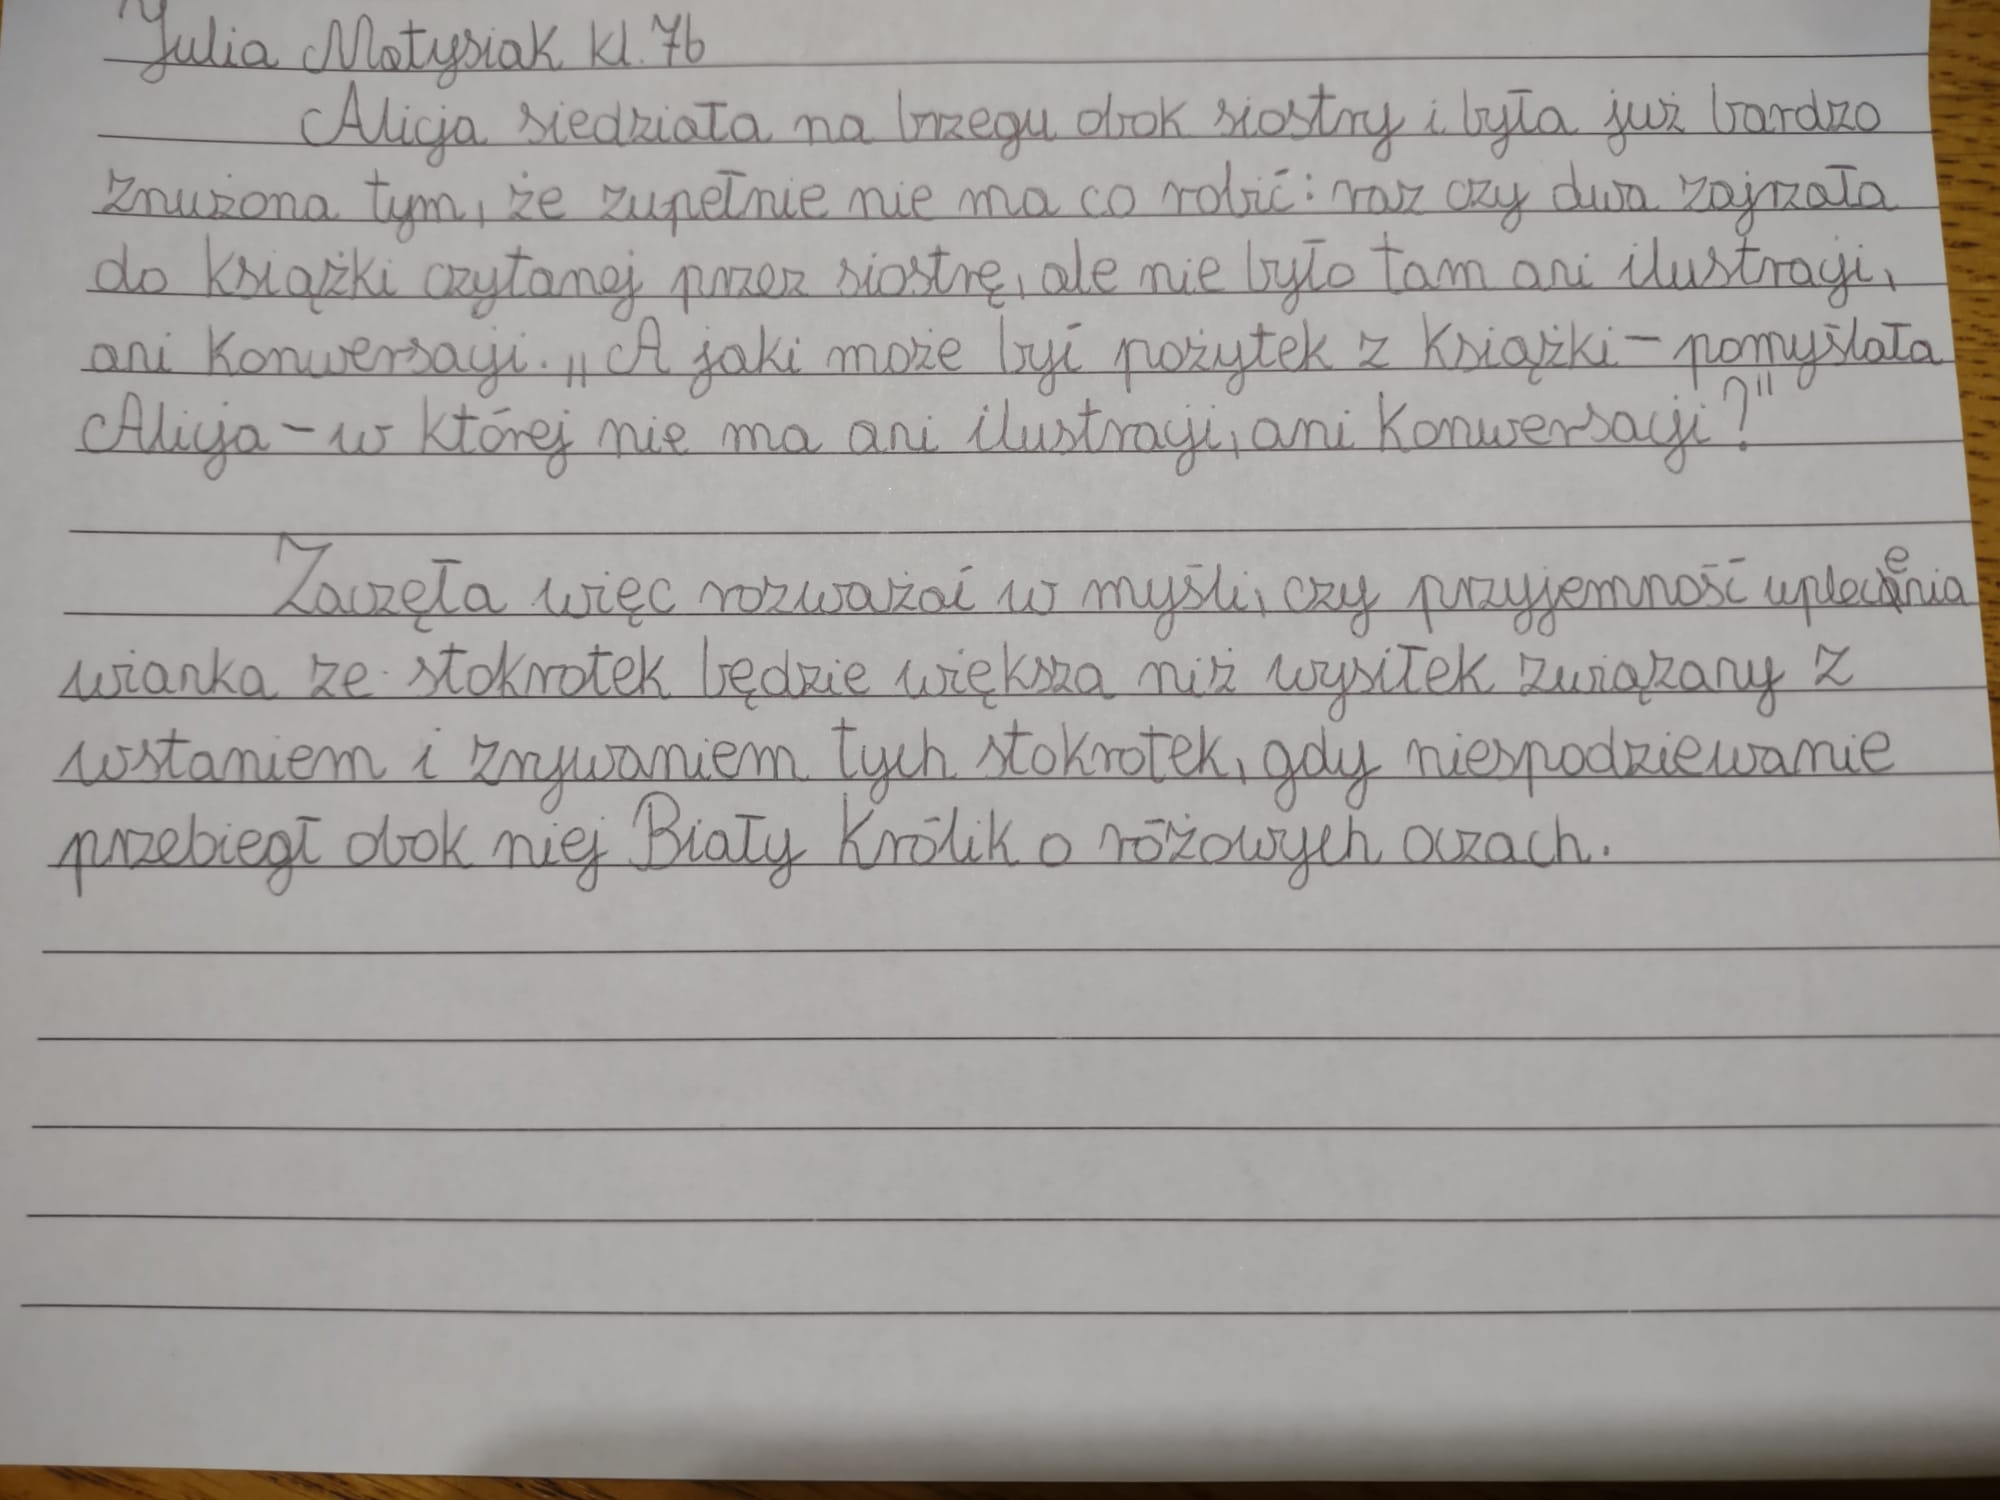 Julia Matysiak kl. 7b
Alicja siedziała na brzegu obok siostry i była już bardzo
znużona tym, że zupełnie nie ma co robić: raz czy dwa zajrzała
do książki czytanej przez siostrę, ale nie było tam ani ilustracji,
ani konwersacji. „A jaki może być pożytek z książki – pomyślała
Alicja – w której nie ma ani ilustracji, ani konwersacji?"
Zaczęła więc rozważać w myśli, czy przyjemność uplecenia
wianka ze stokrotek będzie większa niż wysiłek związany z
wstaniem i zrywaniem tych stokrotek, gdy niespodziewanie
przebiegł obok niej Biały Królik o różowych oczach.